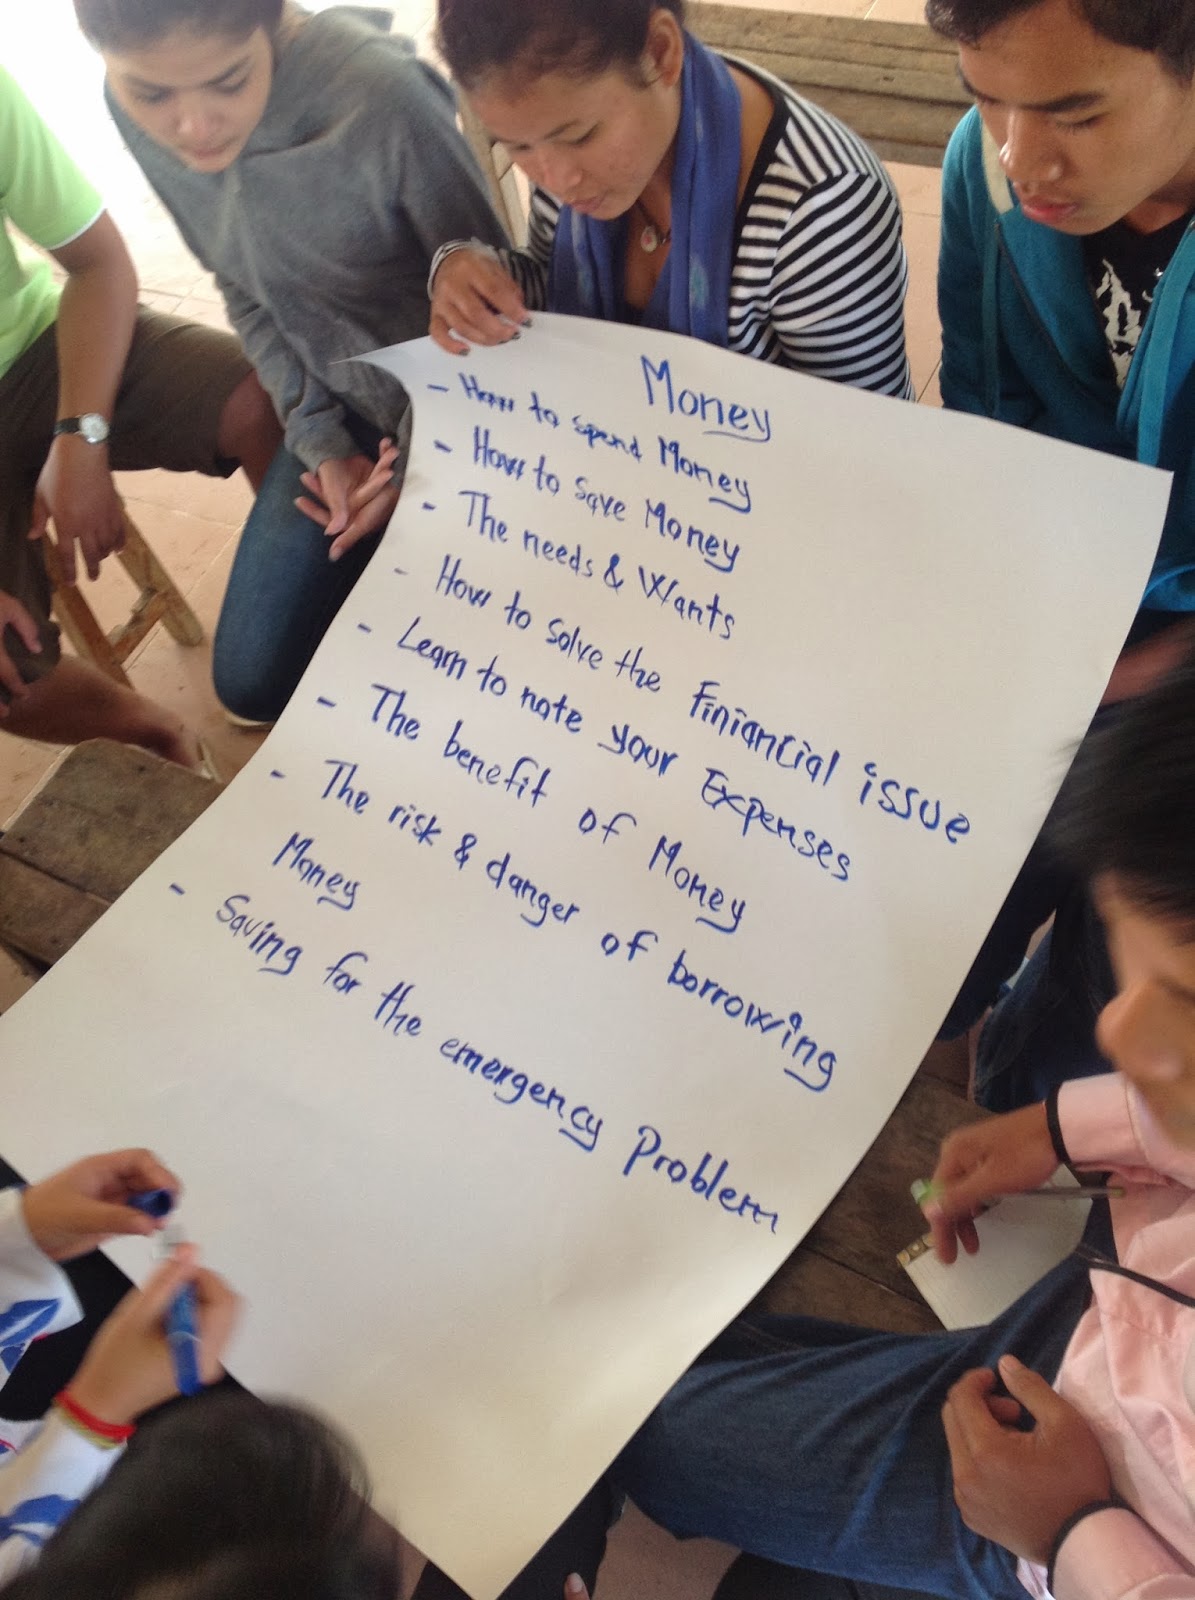 Money
- How to spend Money
- How to save Money
- The needs & Wants
- How to solve the Finiancial issue
- Learn to note your Expenses
- The benefit of Money
- The risk & danger of borrowing
Money
- Saving for the emergency Problem